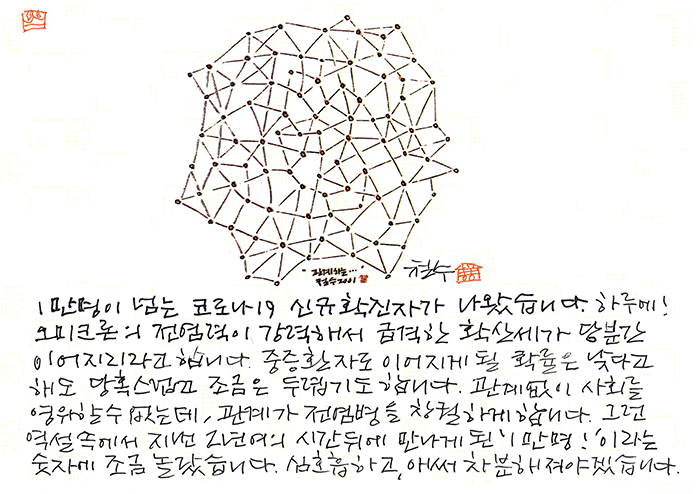 "관계하는…"
철수2021
철수
1만명이 넘는 코로나19 신규확진자가 나왔습니다. 하루에!
오미크론의 전염력이 강력해서 급격한 확산세가 당분간
이어지리라고 합니다. 중증환자로 이어지게 될 확률은 낮다고
해도 당혹스럽고 조금은 두렵기도 합니다. 관계없이 사회를
영위할 수 없는데, 관계가 전염병을 창궐하게 합니다. 그런
역설 속에서 지난 2년여의 시간 뒤에 만나게 된 '1만명!'이라는
숫자에 조금 놀랐습니다. 심호흡하고, 애써 차분해져야겠습니다.